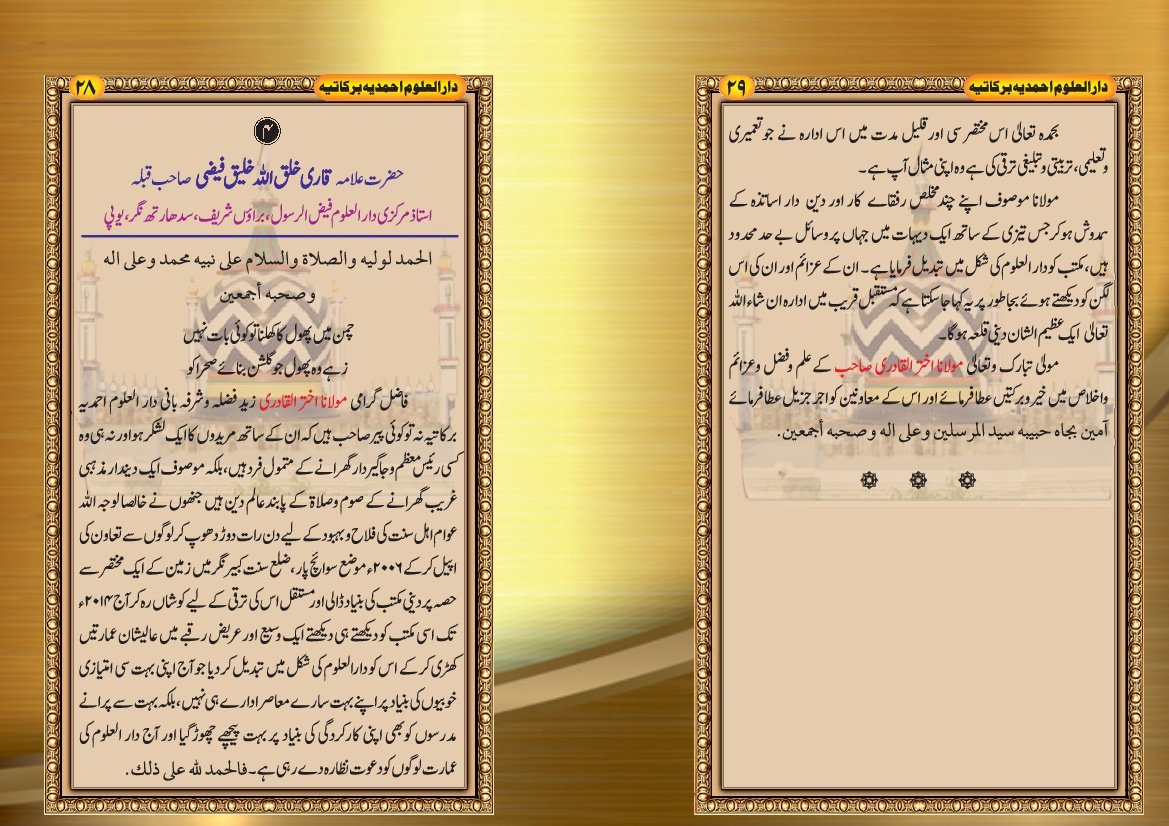 دارالعلوم احمدیہ برکاتیہ
۲۸
۴
حضرت علامہ قاری خلق اللہ خلیق فیضی صاحب قبلہ
استاذ مرکزی دارالعلوم فیض الرسول، براؤں شریف، سدھارتھ نگر، یوپی
الحمد لوليه والصلاة والسلام على نبيه محمد وعلى اله
وصحبه أجمعين
چمن میں پھول کا کھلنا تو کوئی بات نہیں
زہے وہ پھول جو گلشن بنائے صحرا کو
فاضل گرامی مولانا اختر القادری زید فضلہ وشرفہ بانی دار العلوم احمدیہ
برکاتیہ نہ تو کوئی پیر صاحب ہیں کہ ان کے ساتھ مریدوں کا ایک لشکر ہو اور نہ ہی وہ
کسی رئیس معظم وجاگیردار گھرانے کے متمول فرد ہیں، بلکہ موصوف ایک دیندار مذہبی
غریب گھرانے کے صوم وصلاۃ کے پابند عالم دین ہیں جنھوں نے خالصا لوجہ اللہ
عوام اہل سنت کی فلاح وبہبود کے لیے دن رات دوڑ دھوپ کر لوگوں سے تعاون کی
اپیل کر کے ۲۰۰۶ء موضع سوائچ پار، ضلع سنت کبیر نگر میں زمین کے ایک مختصر سے
حصہ پر دینی مکتب کی بنیاد ڈالی اور مستقل اس کی ترقی کے لیے کوشاں رہ کر آج ۲۰۱۴ء
تک اسی مکتب کو دیکھتے ہی دیکھتے ایک وسیع اور عریض رقبے میں عالیشان عمارتیں
کھڑی کر کے اس کو دارالعلوم کی شکل میں تبدیل کر دیا جو آج اپنی بہت سی امتیازی
خوبیوں کی بنیاد پر اپنے بہت سارے معاصر ادارے ہی نہیں، بلکہ بہت سے پرانے
مدرسوں کو بھی اپنی کارکردگی کی بنیاد پر بہت پیچھے چھوڑ گیا اور آج دار العلوم کی
عمارت لوگوں کو دعوت نظارہ دے رہی ہے۔ فالحمد لله على ذلك.
دارالعلوم احمدیہ برکاتیہ
۲۹
بحمدہ تعالیٰ اس مختصر سی اور قلیل مدت میں اس ادارہ نے جو تعمیری
وتعلیمی، تربیتی وتبلیغی ترقی کی ہے وہ اپنی مثال آپ ہے۔
مولانا موصوف اپنے چند مخلص رفقاے کار اور دین دار اساتذہ کے
ہمدوش ہو کر جس تیزی کے ساتھ ایک دیہات میں جہاں پر وسائل بے حد محدود
ہیں، مکتب کو دار العلوم کی شکل میں تبدیل فرمایا ہے۔ ان کے عزائم اور ان کی اس
لگن کو دیکھتے ہوئے بجا طور پر یہ کہا جا سکتا ہے کہ مستقبل قریب میں ادارہ ان شاء اللہ
تعالیٰ ایک عظیم الشان دینی قلعہ ہوگا۔
مولیٰ تبارک وتعالیٰ مولانا اختر القادری صاحب کے علم وفضل وعزائم
واخلاص میں خیر وبرکتیں عطا فرمائے اور اس کے معاونین کو اجر جزیل عطا فرمائے
آمين بجاه حبيبه سيد المرسلين وعلى اله وصحبه أجمعين.